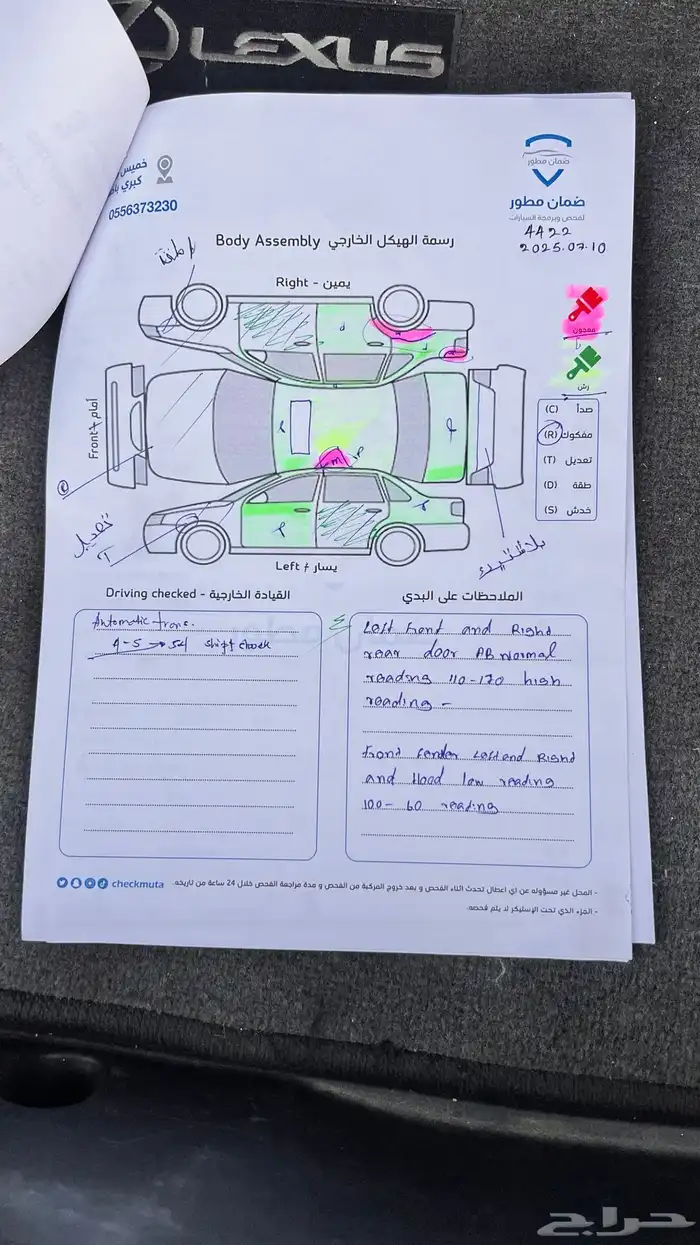 LEXUS
خميس
كبري
0556373230
ضمان مطور
ضمان مطور
لفحص وبرمجة السيارات
4422
2025.07.10
رسمة الهيكل الخارجي Body Assembly
Right - يمين
معجون
رش
Front أمام
(C) صدأ
(R) مفكوك
(T) تعديل
(D) طقة
(S) خدش
R
تعديل
T
m
P
Left يسار
Driving checked - القيادة الخارجية
الملاحظات على البدي
Automatic trans.
4-5 → 54 shift check
Left Front and Right
rear door ABNormal
reading 110-170 high
reading -
Front Fender Left and Right
and Hood low reading
100-60 reading
- المحل غير مسؤوله عن اي اعطال تحدث اثناء الفحص و بعد خروج المركبة من الفحص و مدة مراجعة الفحص خلال 24 ساعة من تاريخه.
checkmuta
- الجزء الذي تحت الإستيكر لا يتم فحصه.
حراج